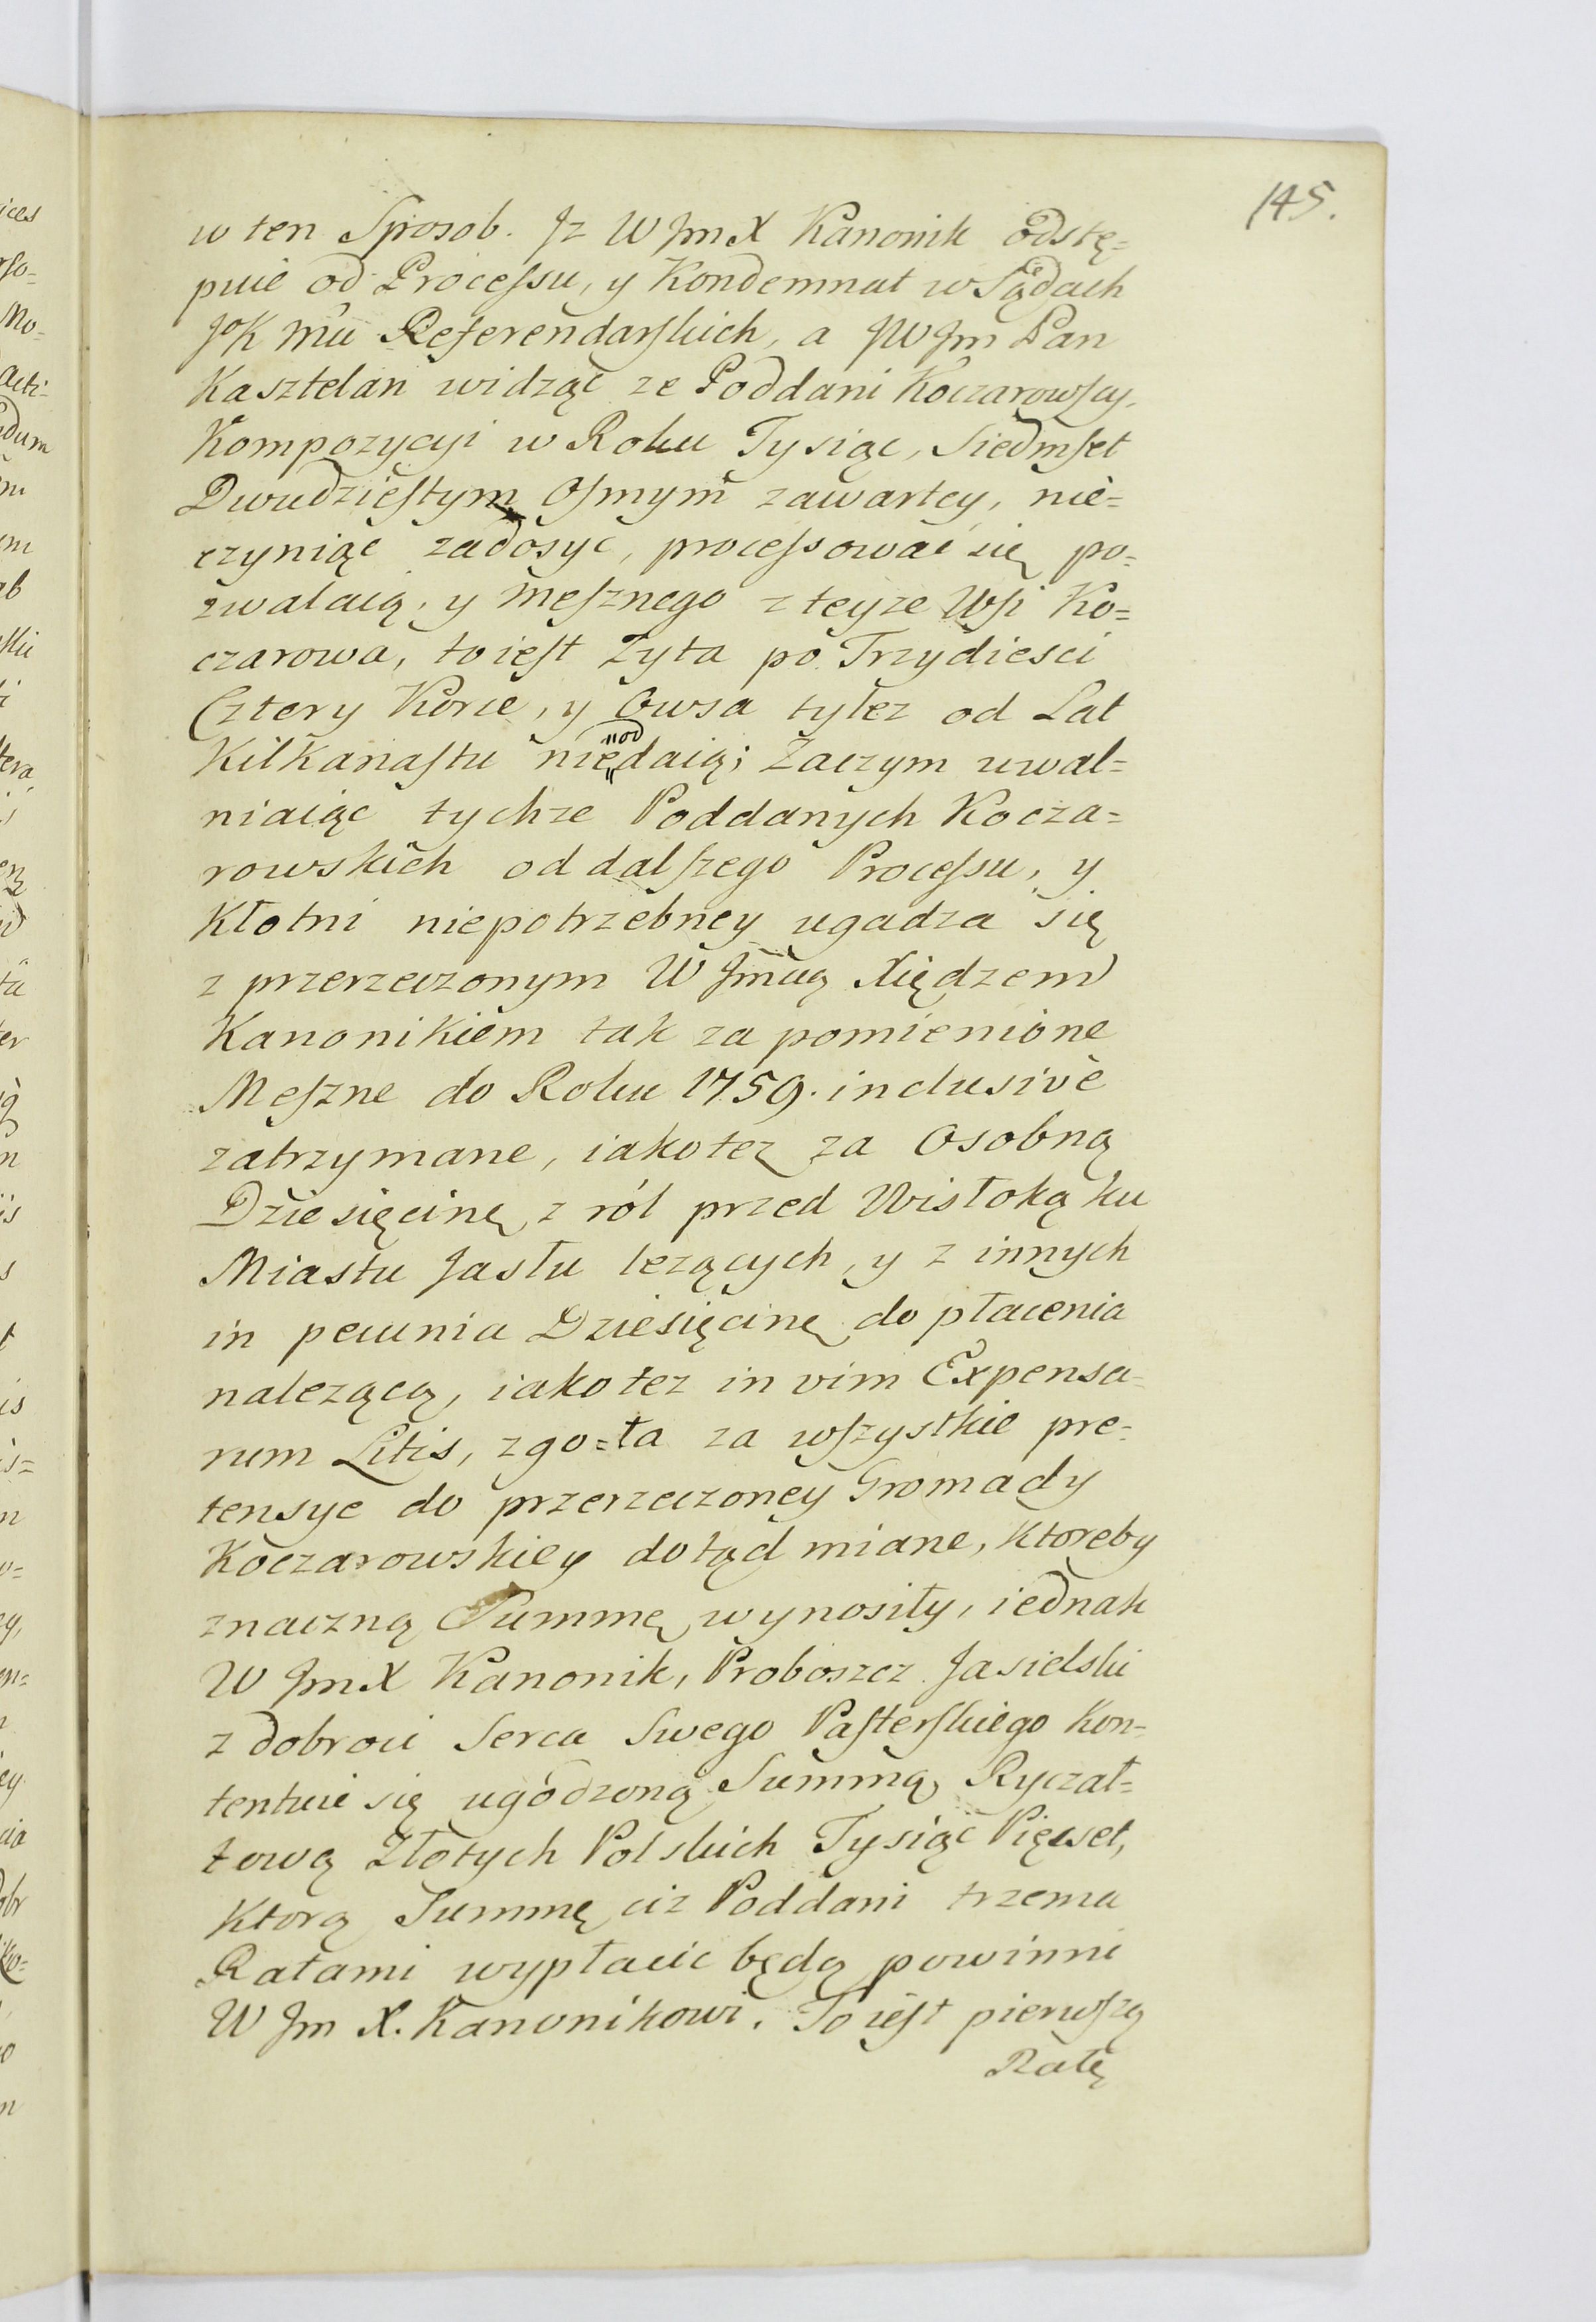 145.
w ten Sposob. Jz W Jm X Kanonik odstę=
puie od Processu, y Kondemnat w Sądach
JoK Mu Referendarskich, a JW Jm Pan
Kasztelan widząc ze Poddani Koczarowscy,
Kompozycyi w Roku Tysiąc, Siedmset
Dwudziestym Osmym zawartey, nie=
czyniąc zadosyc, processować się po=
zwalaią, y Mesznego z teyze Wsi Ko=
czarowa, to iest Zyta po Trzydiesci
Cztery Korce, y Owsa tylez od Lat
Kilkanastu nie od daią; Zaczym uwal=
niaiąc tychze Poddanych Kocza=
rowskich od dalszego Processu, y
Kłotni niepotrzebney ugadza się
z przerzeczonym W Jmcią Xiędzem
Kanonikiem tak za pomienione
Meszne do Roku 1759. inclusivè
zatrzymane, iakotez za Osobną
Dziesięcinę z ról przed Wisłoką ku
Miastu Jasłu lezących, y z innych
in pecunia Dziesięcinę do płacenia
nalezącą, iakotez in vim Expensa=
rum Litis, zgo=ła za wszystkie pre=
tensye do przerzeczoney Gromady
Koczarowskiey dotąd miane, ktoreby
znaczną Summę wynosiły, iednak
W Jm X Kanonik, Proboszcz Jasielski
z dobroci Serca Swego Pasterskiego kon=
tentuie się ugodzoną Summą Ryczał=
tową Złotych Polskich Tysiąc Pięcset,
Ktorą Summę ciz Poddani trzema
Ratami wypłacic będą powinni
W Jm X. Kanonikowi. To iest pierwszą
Ratę